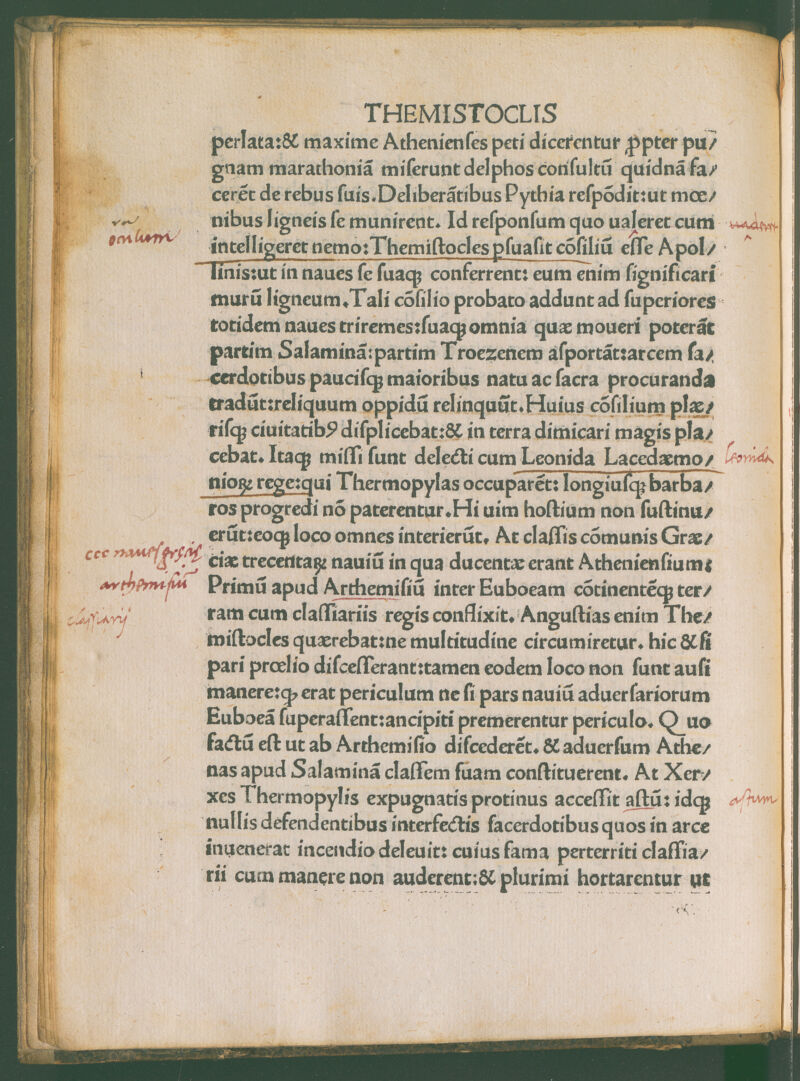 THEMISTOCLIS
perlata:& maxime Athenienſes peti dicerentur ꝓpter pu/
gnam marathoniã miſerunt delphos conſultũ quidnã fa/
cerẽt de rebus ſuis. Deliberãtibus Pythia reſpõdit:ut mœ/
nibus ligneis ſe munirent. Id reſponſum quo ualeret cum
oraculum
intelligeret nemo:Themiſtocles ꝑſuaſit cõſiliũ eſſe Apol/
linis:ut in naues ſe ſuaqꝫ conferrent: eum enim ſignificari
murũ ligneum. Tali cõſilio probato addunt ad ſuperiores
totidem naues triremes:ſuaqꝫ omnia quæ moueri poterãt
partim Salaminã:partim Troezenem aſportãt:arcem ſa/
cerdotibus pauciſqꝫ maioribus natu ac ſacra procuranda
tradũt:reliquum oppidũ relinquũt. Huius cõſilium plæ/
riſqꝫ ciuitatibꝰ diſplicebat:& in terra dimicari magis pla/
cebat. Itaqꝫ miſſi ſunt delecti cum Leonida Lacedæmo/
Leonida
nioꝝ rege:qui Thermopylas occuparẽt: longiuſqꝫ barba/
ros progredi nõ paterentur. Hi uim hoſtium non ſuſtinu/
erũt:eoqꝫ loco omnes interierũt. At claſſis cõmunis Græ/
ccc naues
ciæ trecentaꝝ nauiũ in qua ducentæ erant Athenienſium:
arthemisiũ
Primũ apud Arthemiſiũ inter Euboeam cõtinentẽqꝫ ter/
claſſiarij
ram cum claſſiariis regis conflixit. Anguſtias enim The/
miſtocles quærebat:ne multitudine circumiretur. hic & ſi
pari prœlio diſceſſerant:tamen eodem loco non ſunt auſi
manere:ꝙ erat periculum ne ſi pars nauiũ aduerſariorum
Euboeã ſuperaſſent:ancipiti premerentur periculo. Quo
factũ eſt ut ab Arthemiſio diſcederẽt. & aduerſum Athe/
nas apud Salaminã claſſem ſuam conſtituerent. At Xer/
xes Thermopylis expugnatis protinus acceſſit aſtũ: idqꝫ
aſtum
nullis defendentibus interfectis ſacerdotibus quos in arce
inuenerat incendio deleuit: cuius fama perterriti claſſia/
rii cum manere non auderent:& plurimi hortarentur ut